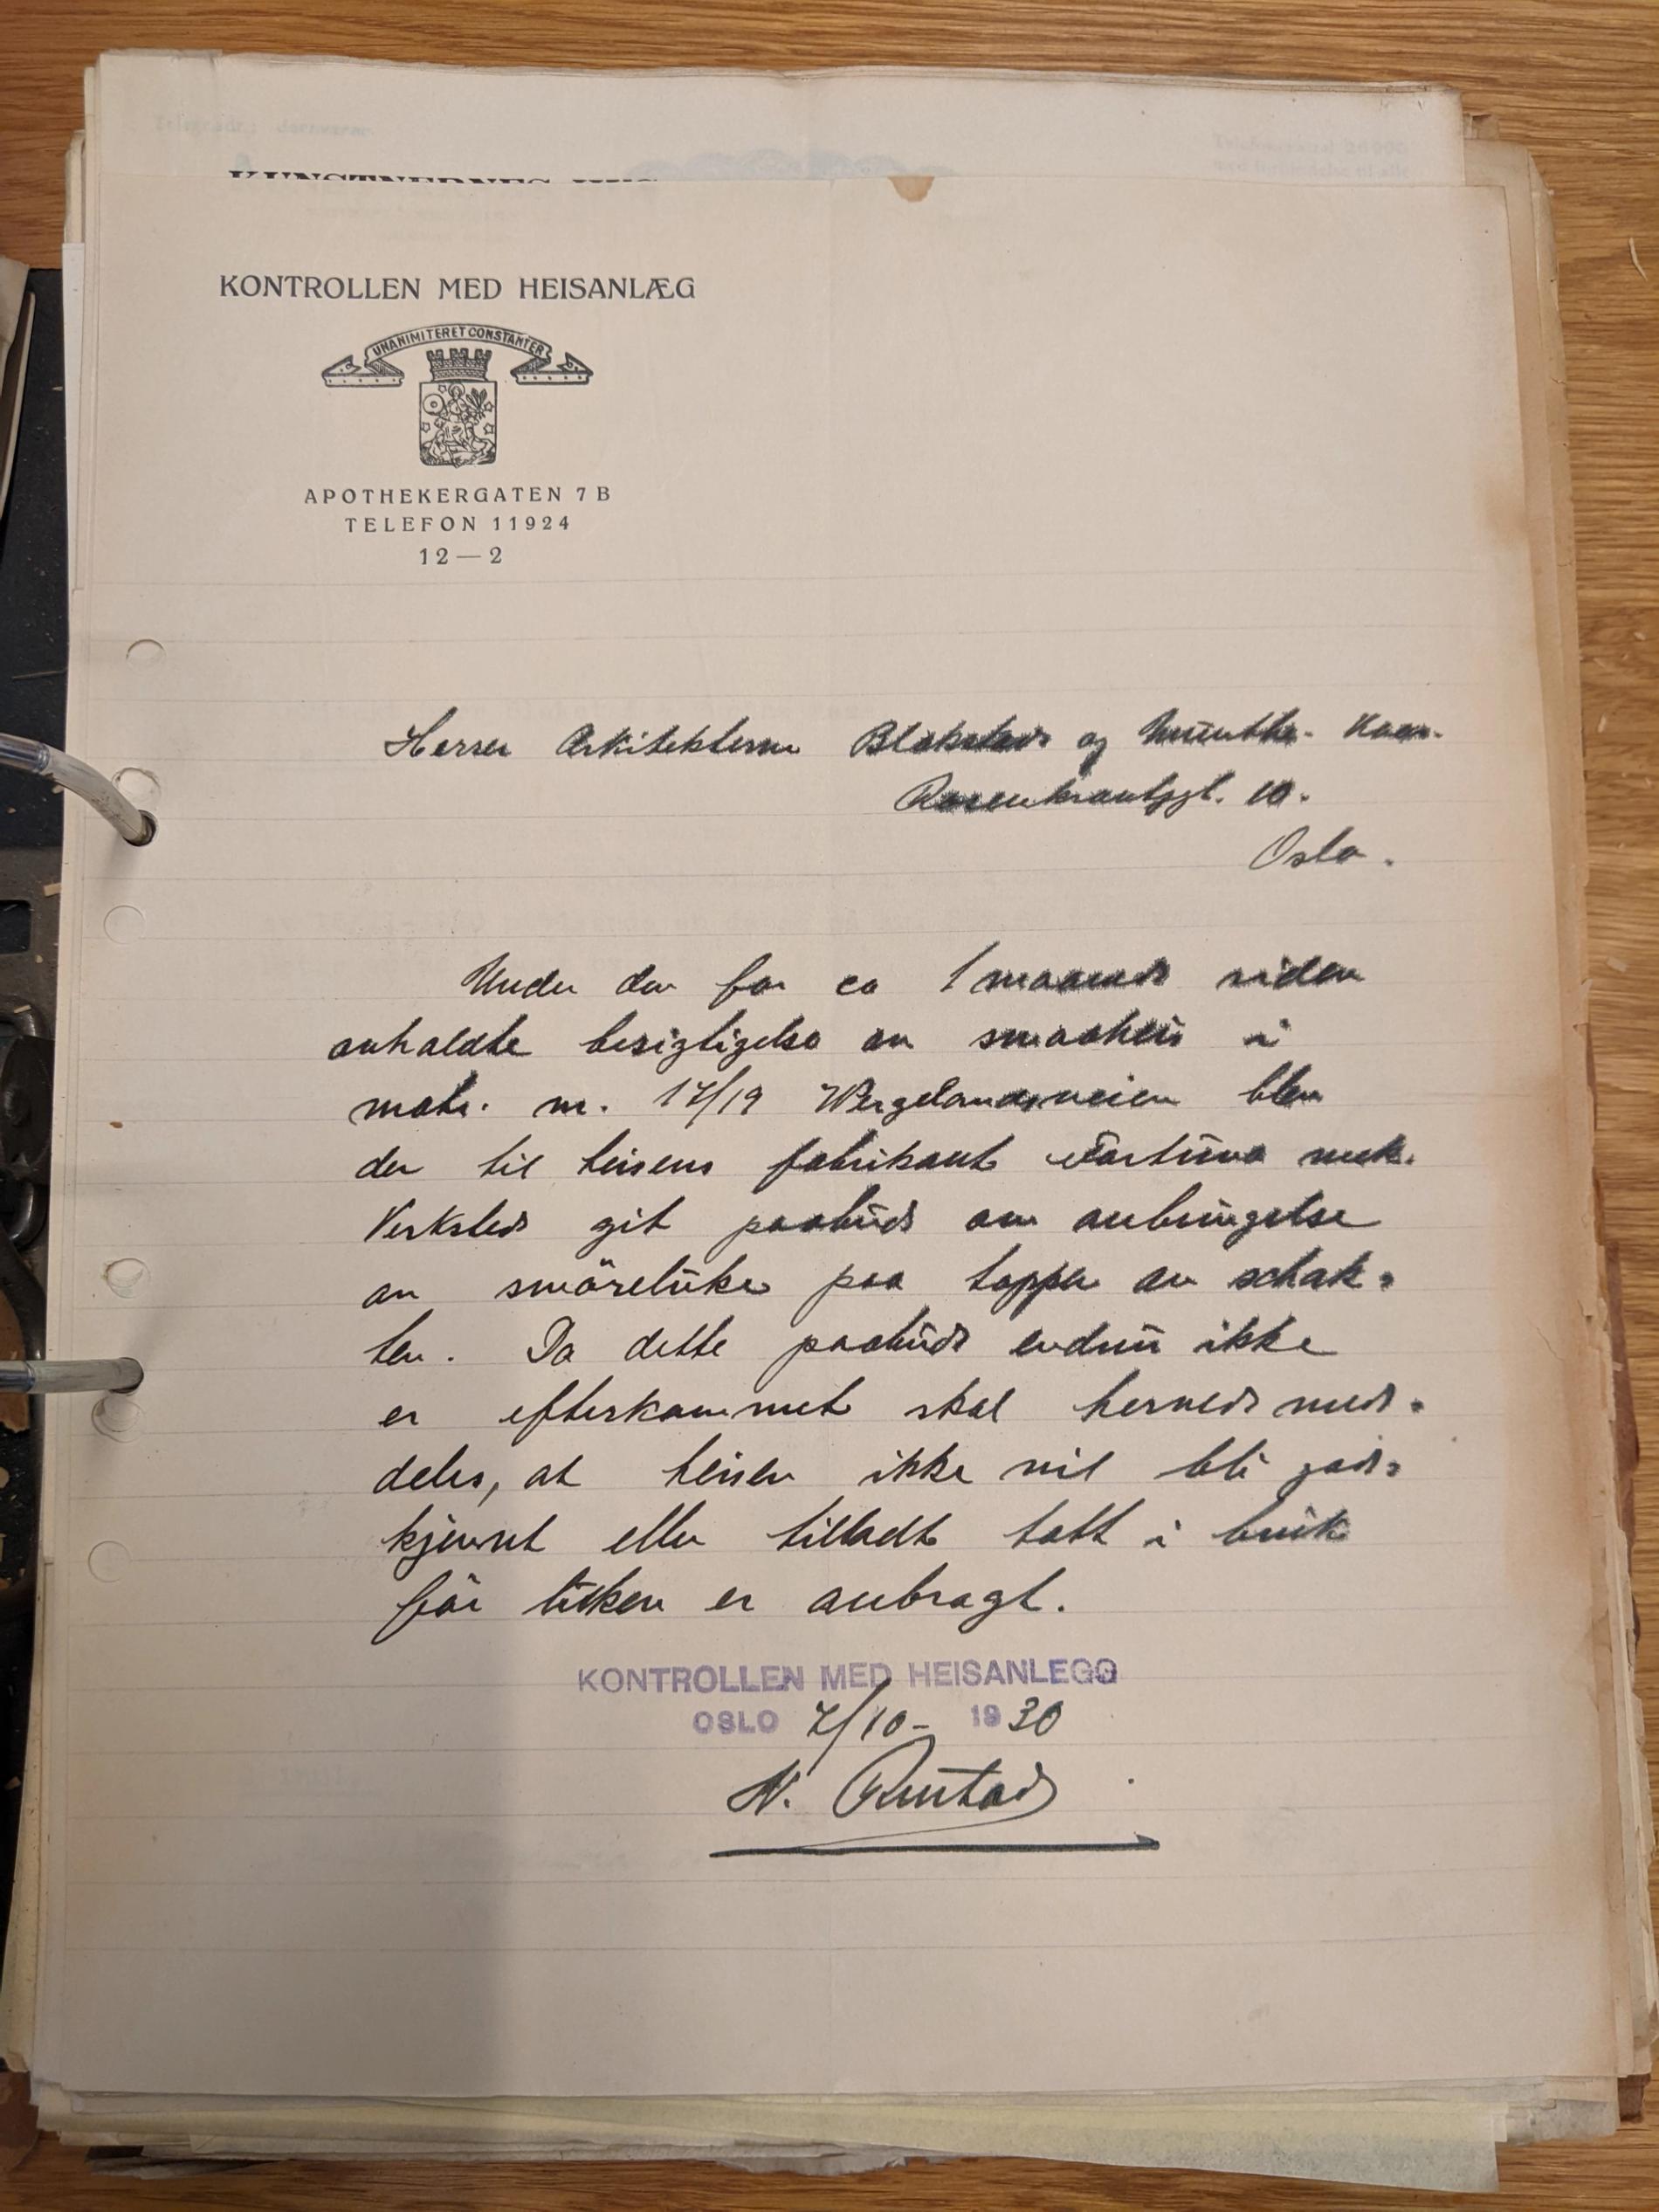 KONTROLLEN MED HEISANLÆG
UNANIMITER ET CONSTANTER
APOTHEKERGATEN 7 B
TELEFON 11924
12 — 2
Herrer Arkitekterne Blakstad og Munthe-Kaas.
Rosenkrantzgt. 10.
Oslo.
Under den for ca 1 maaned siden
avholdte besigtigelse av smaaheis i
matr. nr. 17/19 Wergelandsveien blev
der til heisens fabrikant Fortuna mek.
Verksted git paabud om anbringelse
av smøreluke paa toppen av schak-
ten. Da dette paabud endnu ikke
er efterkommet skal herved med-
deles, at heisen ikke vil bli god-
kjennt eller tilladt tatt i bruk
før luken er anbragt.
KONTROLLEN MED HEISANLEGG
OSLO 7/10- 1930
N. Rustad